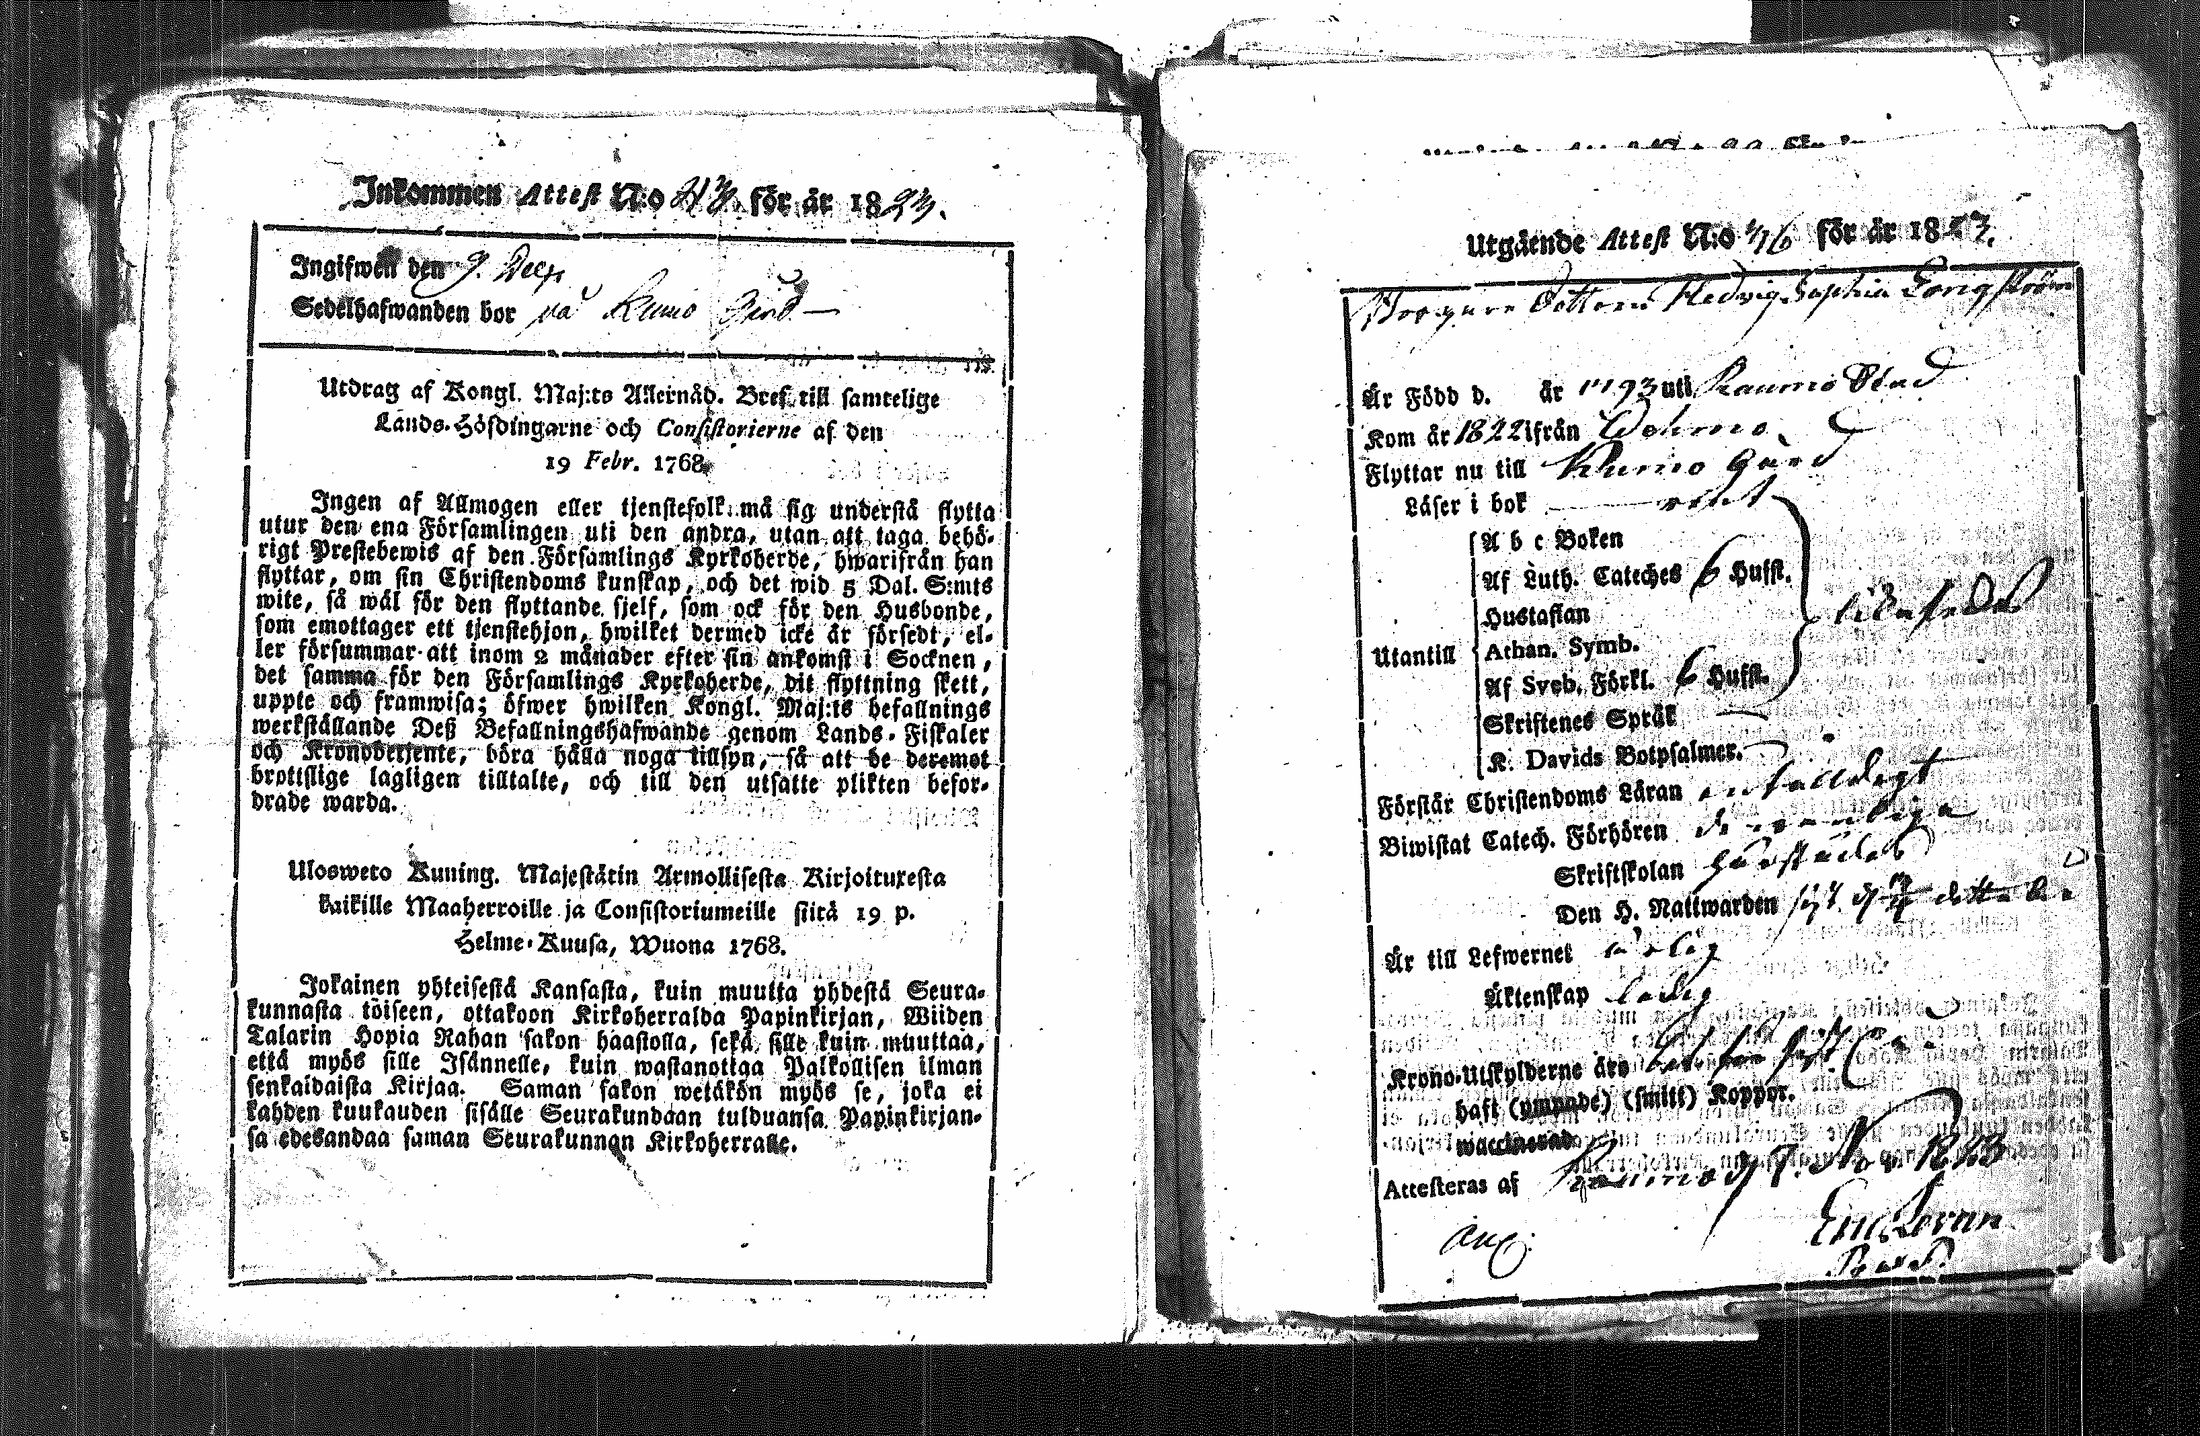 Inkommen Attest N:o 43. för år 1823.
Ingifwen den 9. Decr
Sedelhafwanden bor på Kumo Gård
Utdrag af Kongl. Maj:ts Allernåd. Bref till samtelige
Lands-Höfdingarne och Consistorierne af den
19 Febr. 1768.
Ingen af Allmogen eller tjenstefolk må sig understå flytta
utur den ena Församlingen uti den andra, utan att taga behö-
rigt Prestebewis af den Församlings Kyrkoherde, hwarifrån han
flyttar, om sin Christendoms kunskap, och det wid 5 Dal. S:mts
wite, så wäl för den flyttande sjelf, som ock för den Husbonde,
som emottager ett tjenstehjon, hwilket dermed icke är försedt, el-
ler försummar att inom 2 månader efter sin ankomst i Socknen,
det samma för den Församlings Kyrkoherde, dit flyttning skett,
uppte och framwisa; öfwer hwilken Kongl. Maj:ts befallnings
werkställande Deß Befallningshafwande genom Lands-Fiskaler
och Kronobetjente, böra hålla noga tillsyn, så att de deremot
brottslige lagligen tilltalte, och till den utsatte plikten befor-
drade warda.
Ulosweto Kuning. Majestätin Armollisesta Kirjoituxesta
kaikille Maaherroille ja Consistoriumeille siitä 19 p.
Helme-Kuusa, Wuona 1768.
Jokainen yhteisestä Kansasta, kuin muutta yhdestä Seura-
kunnasta töiseen, ottakoon Kirkoherralda Papinkirjan, Wiiden
Talarin Hopia Rahan sakon haastolla, sekä sille kuin muuttaa,
että myös sille Isännelle, kuin wastanottaa Palkollisen ilman
senkaidaista Kirjaa. Saman sakon wetäkön myös se, joka ei
kahden kuukauden sisälle Seurakundaan tulduansa Papinkirjan-
sa edesandaa saman Seurakunnan Kirkoherralle.
Utgående Attest N:o 46 för år 1823.
Dottern Hedvig Sophia Longström
Är Född d. år 1793 uti Raumo Stad
Kom år 1822 ifrån
Flyttar nu till Kumo Gård
Läser i bok rent
A b c Boken
Af Luth. Cateches 6 Hufst.
Hustaflan
Utantill Athan. Symb.
Af Sveb. Förkl. 6 Hufst.
Skriftenes Språk
K. Davids Botpsalmer.
Förstår Christendoms Läran enfalldigt
Biwistat Catech. Förhören
Skriftskolan
Den H. Nattwarden sist d.
Är till Lefwernet
Äktenskap ledig
Krono-Utskylderne äro
haft (ympade) (smitt) Koppor.
waccinerad
Attesteras af Raumo d. 7. Nov 1823